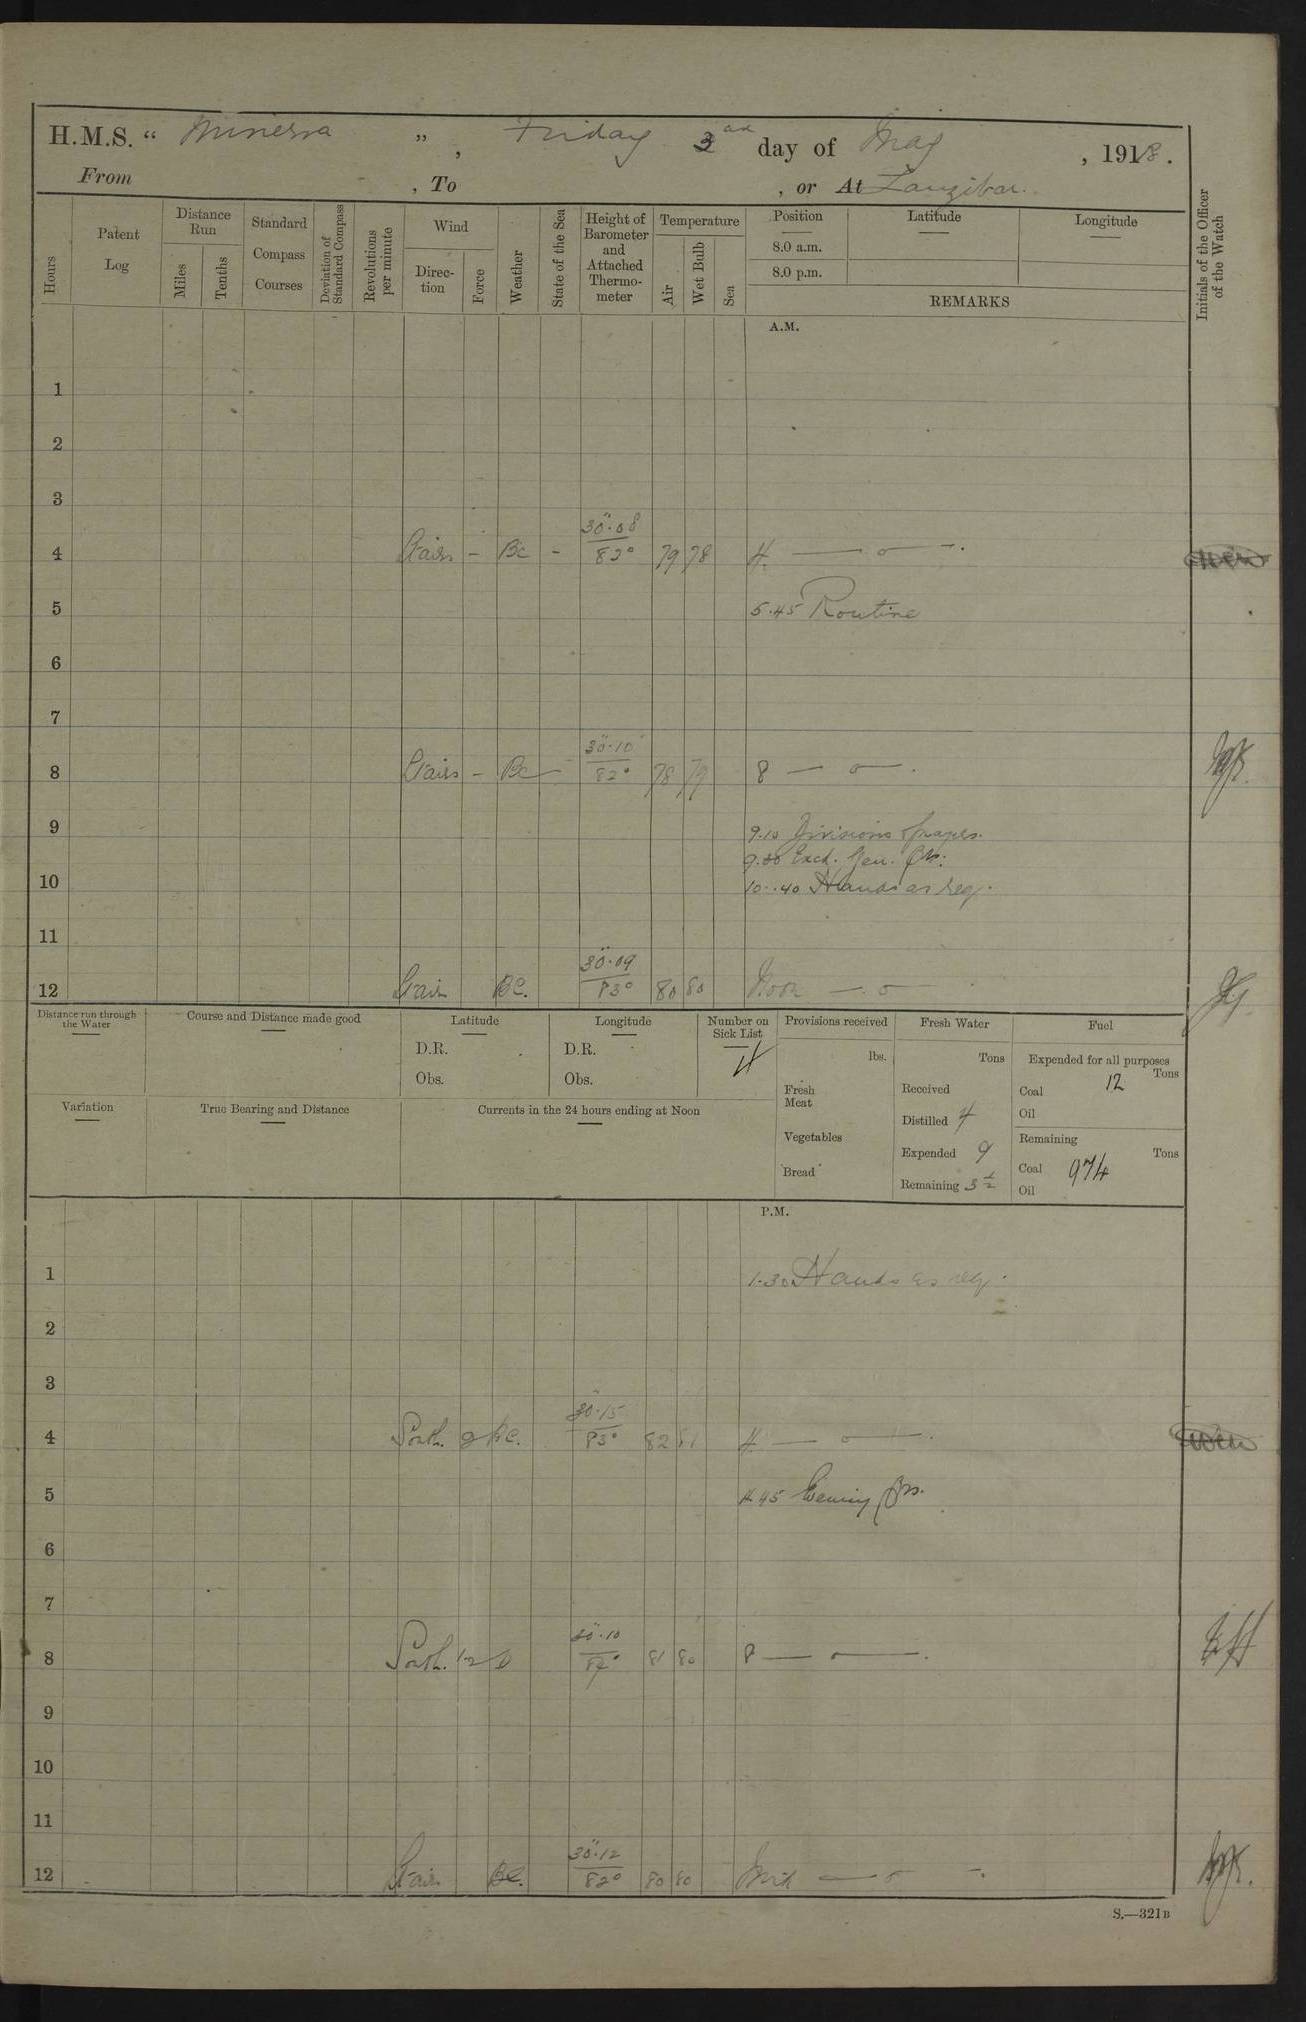 H.M.S. “ Minerva ” , Friday 3rd day of May , 1918 .
From , To , or At Zanzibar.
Hours
Patent Log
Distance Run
Miles
Tenths
Standard Compass Courses
Deviation of Standard Compass
Revolutions per minute
Wind
Direc-tion
Force
Weather
State of the Sea
Height of Barometer and Attached Thermo-meter
Temperature
Air
Wet Bulb
Sea
Position
8.0 a.m.
8.0 p.m.
Latitude
Longitude
REMARKS
Initials of the Officer of the Watch
A.M.
1
2
3
4 Airs – Bc – 30.08 82° 79 78 4. — o —.
5 5.45 Routine
6
7
8 Airs – Bc – 30.10 82° 78 79 8 — o —.
9 9.10 Divisions & prayers.
9.30 Exd. Gen. Qrs.
10 10.40 Hands as req.
11
12 Airs BC. 30.09 83° 80 80 Noon — o
Distance run through the Water
Course and Distance made good
Latitude
D.R.
Obs.
Longitude
D.R.
Obs.
Number on Sick List
4
Provisions received
lbs.
Fresh Meat
Vegetables
Bread
Fresh Water
Tons
Received
Distilled 4
Expended 9
Remaining 3 1/2
Fuel
Expended for all purposes
Tons
Coal 12
Oil
Remaining
Tons
Coal 974
Oil
Variation
True Bearing and Distance
Currents in the 24 hours ending at Noon
P.M.
1 1.30 Hands as req.
2
3
4 South. 2 BC. 30.15 83° 82 81 4. — o —.
5 4.45 Evening Qrs.
6
7
8 South. 1-2 30.10 81 80 8 — o —.
9
10
11
12 Airs BC. 30.12 82° 80 80 Mid — o –.
S.—321B